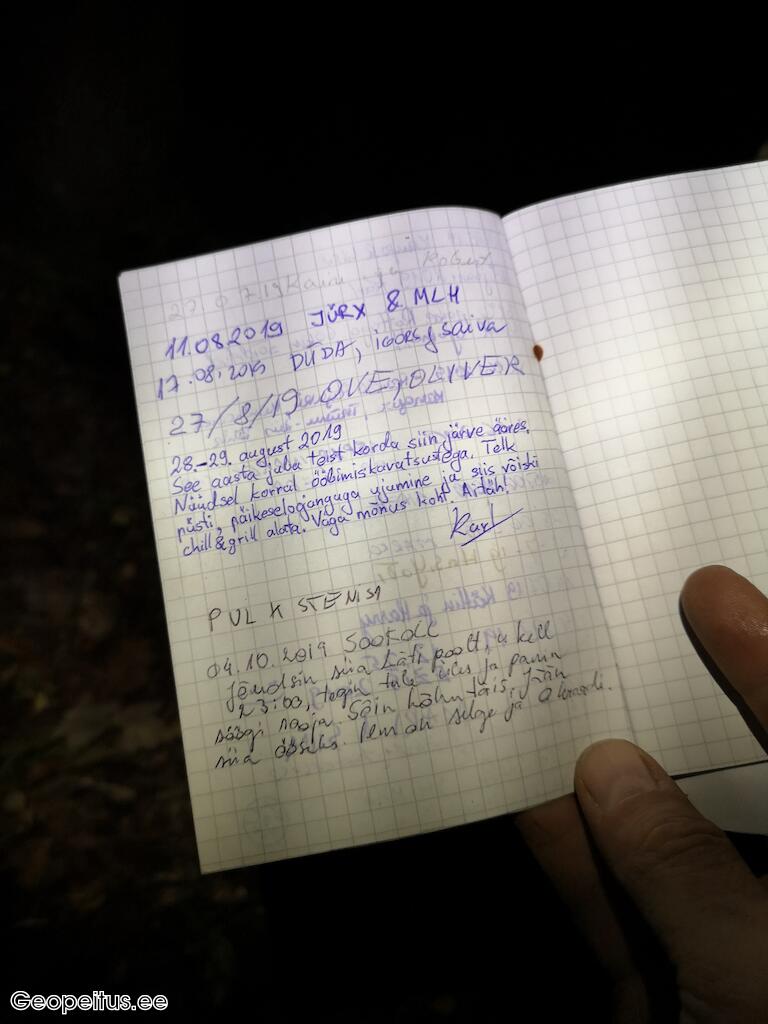 27.07.19 Kairi ja Robert
11.08.2019 JÜRX & MLH
17.08.2019 DÜDA, IGORS, Saiva
27/8/19 OVE, OLIVER
28.-29. august 2019
See aasta juba teist korda siin järve ääres.
Nüüdsel korral ööbimiskavatsustega. Telk
püsti, päikeseloojanguga ujumine ja siis võiski
chill & grill alata. Väga mõnus koht. Aitäh!
Karl
PULK STENISI
04.10.2019 Sookoll
Jõudsin siia Läti poolt, u kell
23:00, tegin tule üles ja panin
söögi sooja. Sõin kõhu täis, jään
siia ööseks. Ilm on selge ja
Geopeitus.ee